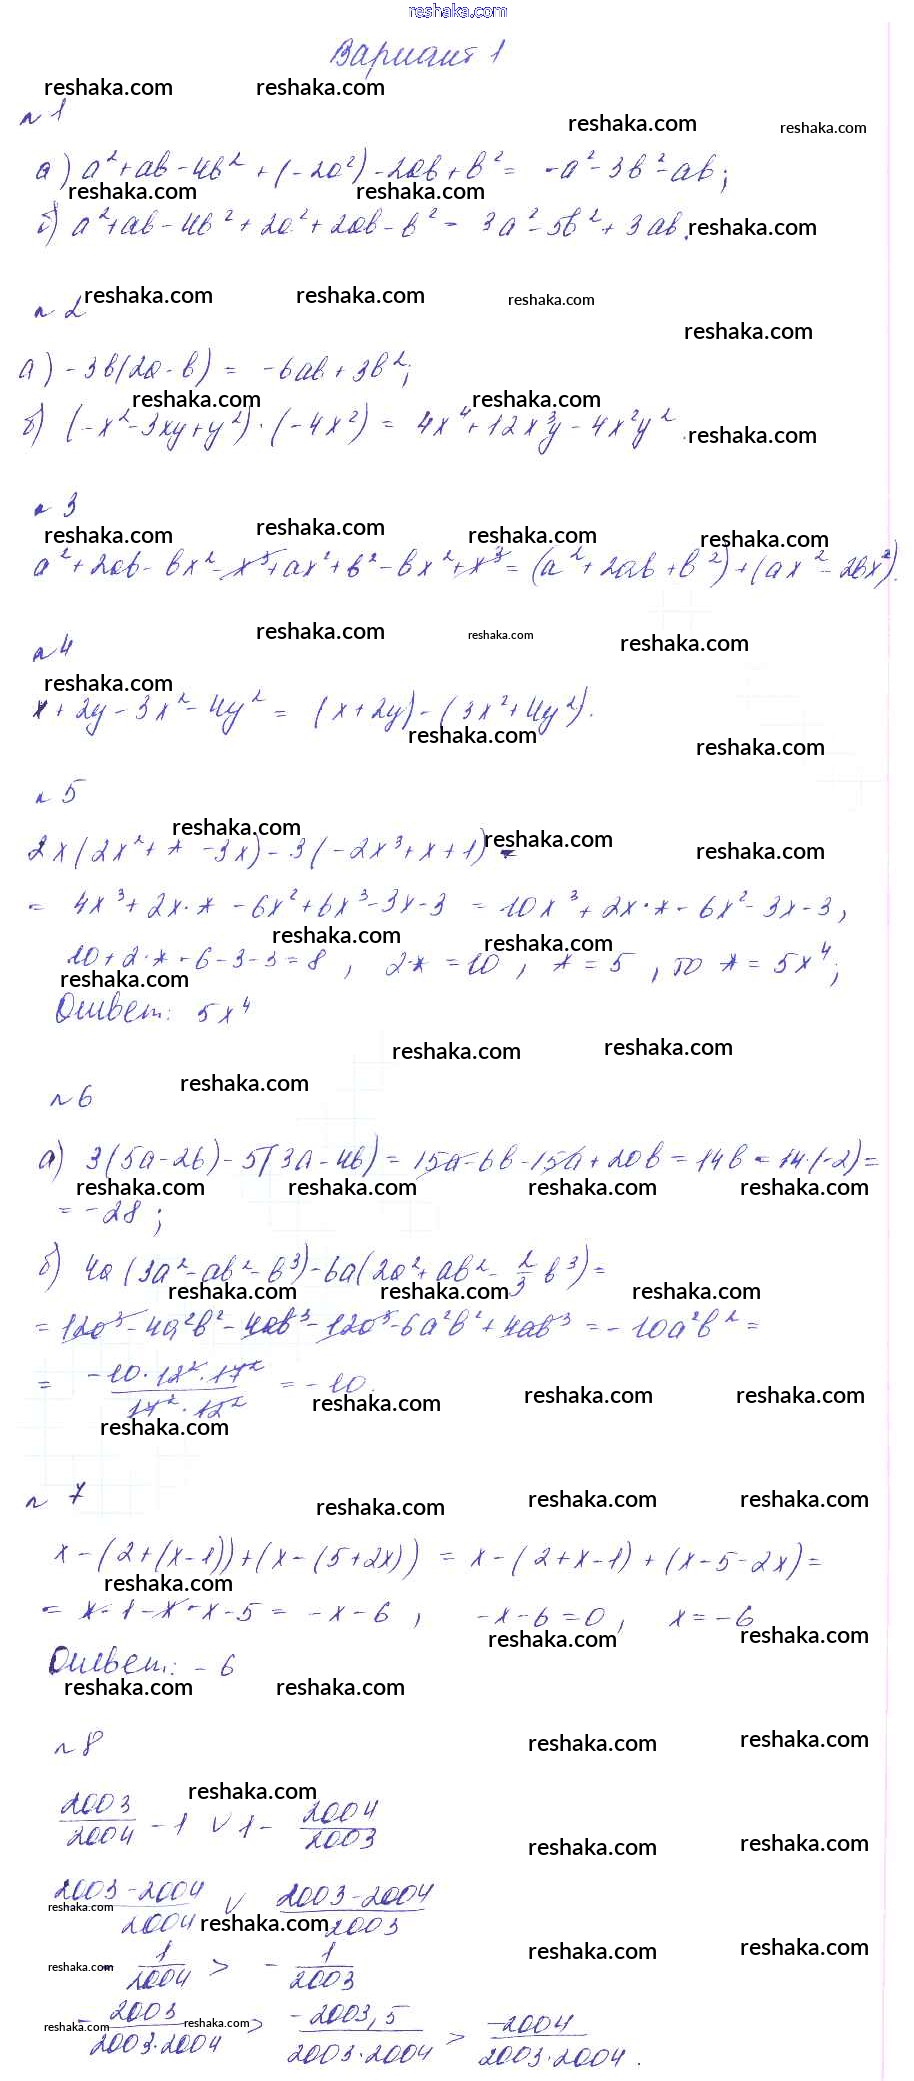 reshaka.com
Вариант 1
reshaka.com reshaka.com
n 1
reshaka.com reshaka.com
а) a² + ab - 4b² + (-2a²) - 2ab + b² = -a² - 3b² - ab;
reshaka.com reshaka.com
б) a² + ab - 4b² + 2a² + 2ab - b² = 3a² - 5b² + 3ab.
reshaka.com
n 2
reshaka.com reshaka.com reshaka.com
reshaka.com
а) -3b(2a - b) = -6ab + 3b²;
reshaka.com reshaka.com
б) (-x² - 3xy + y²)·(-4x²) = 4x⁴ + 12x³y - 4x²y².
reshaka.com
n 3
reshaka.com reshaka.com reshaka.com reshaka.com
a² + 2ab - bx² - x³ + ax² + b² - bx² + x³ = (a² + 2ab + b²) + (ax² - 2bx²).
n 4
reshaka.com reshaka.com reshaka.com
reshaka.com
x + 2y - 3x² - 4y² = (x + 2y) - (3x² + 4y²).
reshaka.com reshaka.com
n 5
reshaka.com reshaka.com reshaka.com
2x(2x² + * - 3x) - 3(-2x³ + x + 1) =
= 4x³ + 2x·* - 6x² + 6x³ - 3x - 3 = 10x³ + 2x·* - 6x² - 3x - 3,
reshaka.com reshaka.com
10 + 2·* - 6 - 3 - 3 = 8, 2·* = 10, * = 5, то * = 5x⁴;
reshaka.com
Ответ: 5x⁴
reshaka.com reshaka.com
n 6
reshaka.com
а) 3(5a - 2b) - 5(3a - 4b) = 15a - 6b - 15a + 20b = 14b = 14·(-2) =
reshaka.com reshaka.com reshaka.com reshaka.com
= -28;
б) 4a(3a² - ab² - b³) - 6a(2a² + ab² - 2/3 b³) =
reshaka.com reshaka.com reshaka.com
= 12a³ - 4a²b² - 4ab³ - 12a³ - 6a²b² + 4ab³ = -10a²b² =
= -10·12²·17² / 17²·12² = -10.
reshaka.com reshaka.com reshaka.com
reshaka.com
n 7
reshaka.com reshaka.com reshaka.com
x - (2 + (x - 1)) + (x - (5 + 2x)) = x - (2 + x - 1) + (x - 5 - 2x) =
reshaka.com
= x - 1 - x - x - 5 = -x - 6, -x - 6 = 0, x = -6
reshaka.com reshaka.com
Ответ: -6
reshaka.com reshaka.com
n 8
reshaka.com reshaka.com
reshaka.com
2003/2004 - 1 ∨ 1 - 2004/2003
reshaka.com reshaka.com
2003 - 2004 / 2004 ∨ 2003 - 2004 / 2003
reshaka.com reshaka.com
reshaka.com reshaka.com
- 1/2004 > - 1/2003
reshaka.com
- 2003 / 2003·2004 > -2003,5 / 2003·2004 > -2004 / 2003·2004.
reshaka.com reshaka.com